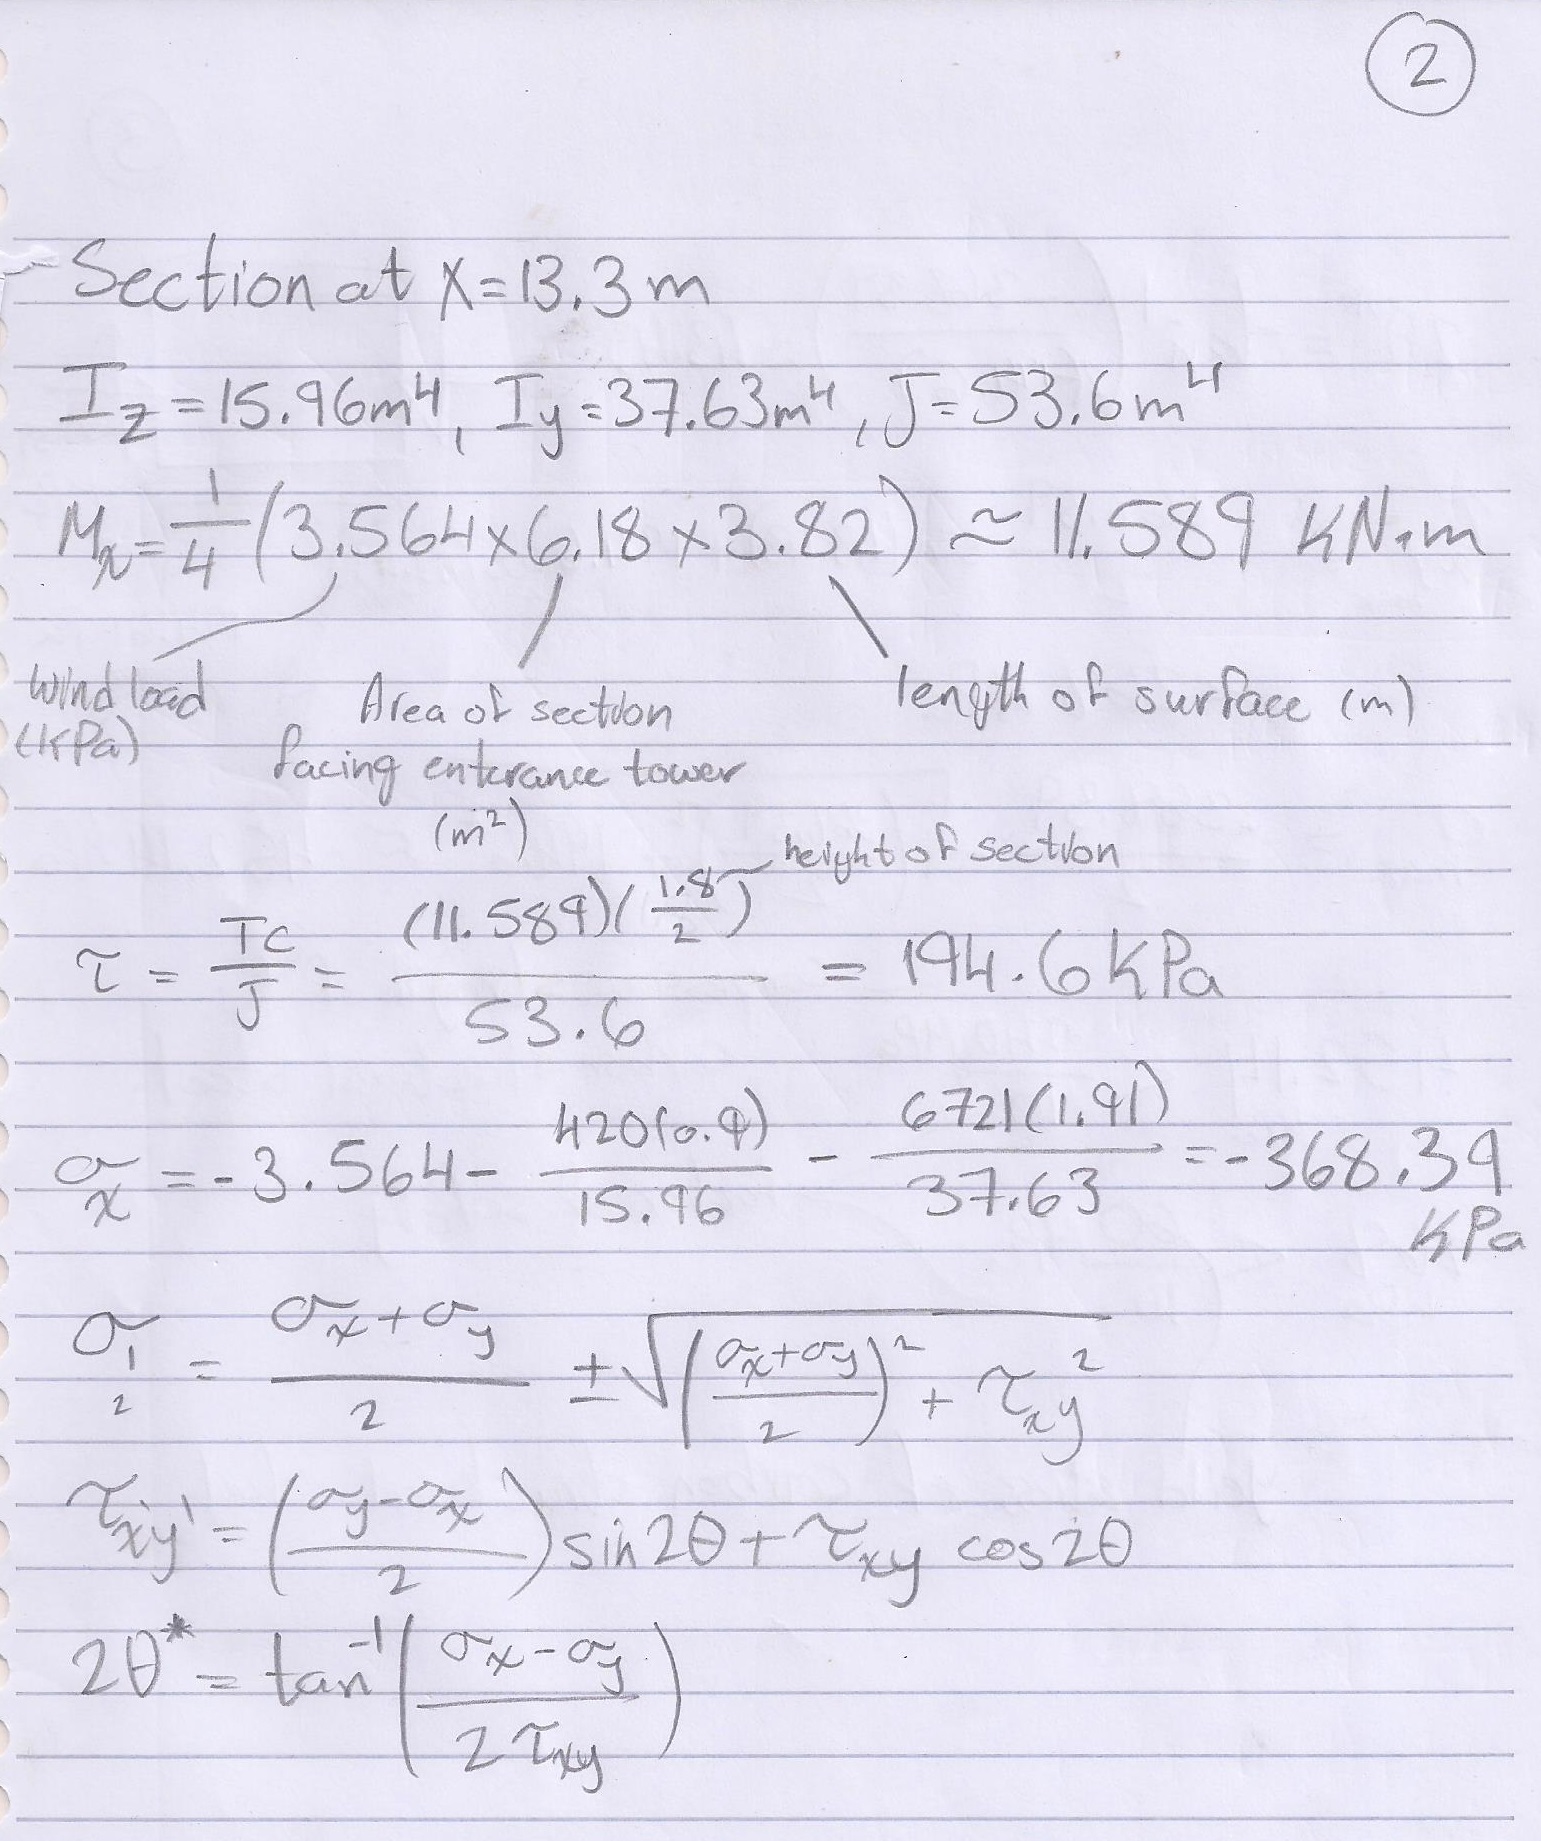 2
Section at x=13.3m
I_z=15.96m⁴, I_y=37.63m⁴, J=53.6m⁴
M_x=1/4(3.564×6.18×3.82)≈11.589 KN.m
wind load
(kPa)
Area of section
facing enterance tower
(m²)
length of surface (m)
height of section
τ = Tc/J = (11.589)(1.8/2)/53.6 = 194.6 KPa
σ_x = -3.564 - 420(0.9)/15.96 - 6721(1.91)/37.63 = -368.39
KPa
σ_1,2 = (σ_x+σ_y)/2 ± √(((σ_x+σ_y)/2)² + τ_xy²)
τ_x'y' = ((σ_y-σ_x)/2) sin2θ + τ_xy cos2θ
2θ* = tan⁻¹((σ_x-σ_y)/(2τ_xy))